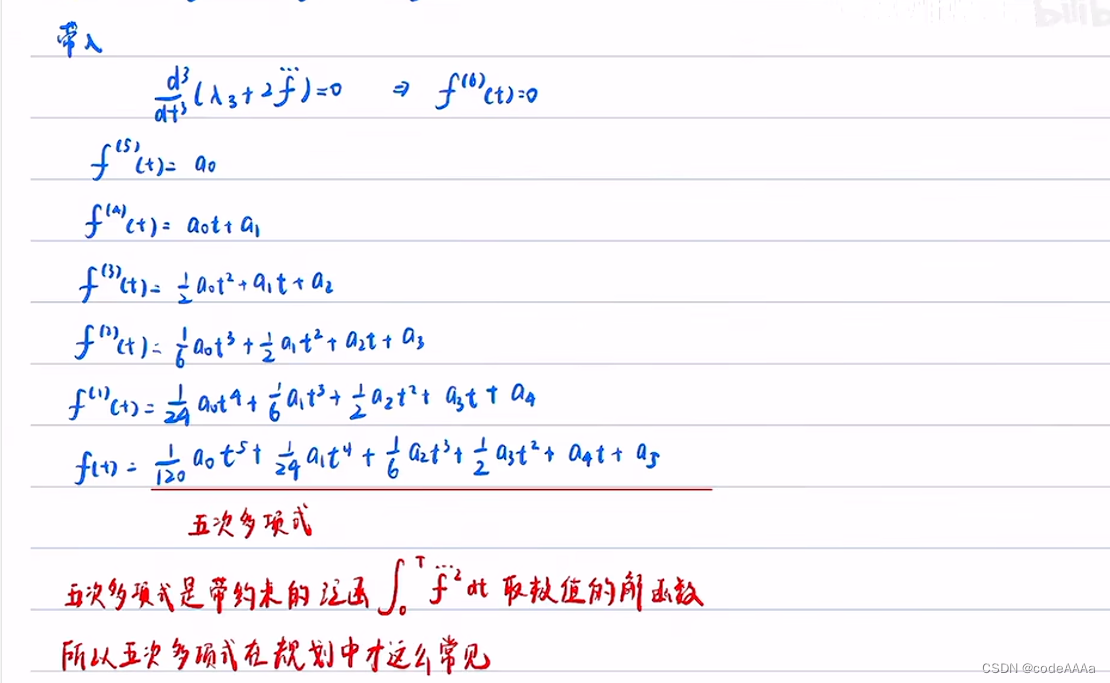 bilib
带入
d³/dt³(λ₃+2f⃛)=0 ⇒ f⁽⁶⁾(t)=0
f⁽⁵⁾(t)= a₀
f⁽⁴⁾(t)= a₀t+a₁
f⁽³⁾(t)= 1/2 a₀t²+a₁t+a₂
f⁽²⁾(t)= 1/6 a₀t³+1/2 a₁t²+a₂t+a₃
f⁽¹⁾(t)= 1/24 a₀t⁴+1/6 a₁t³+1/2 a₂t²+a₃t+a₄
f(t)= 1/120 a₀t⁵+1/24 a₁t⁴+1/6 a₂t³+1/2 a₃t²+a₄t+a₅
五次多项式
五次多项式是带约束的泛函∫₀ᵀ f⃛² dt 取数值的解函数
所以五次多项式在规划中才这么常见
CSDN @codeAAAa